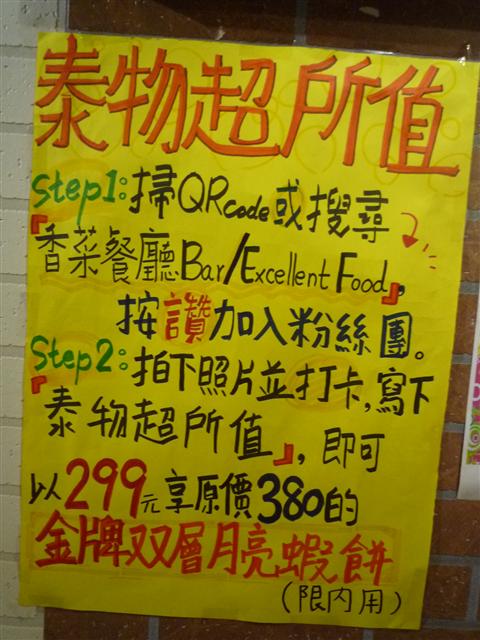 泰物超所值
Step1:掃QRcode或搜尋
『香菜餐廳Bar/Excellent Food』,
按讚加入粉絲團。
Step2:拍下照片並打卡,寫下
『泰物超所值』,即可
以299元享原價380的
金牌双層月亮蝦餅
(限內用)